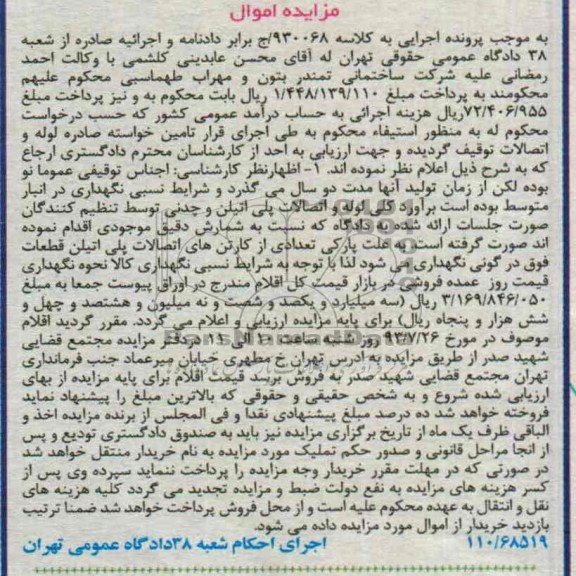 مزایده اموال
به موجب پرونده اجرایی به کلاسه ۹۳۰۰۶۸/ج برابر دادنامه و اجرائیه صادره از شعبه
۳۸ دادگاه عمومی حقوقی تهران له آقای محسن عابدینی کلشمی با وکالت احمد
رمضانی علیه شرکت ساختمانی تمندر بتون و مهراب طهماسبی محکوم علیهم
محکومند به پرداخت مبلغ ۱/۴۴۸/۱۳۹/۱۱۰ ریال بابت محکوم به و نیز پرداخت مبلغ
۷۲/۴۰۶/۹۵۵ریال هزینه اجرائی به حساب درآمد عمومی کشور که حسب درخواست
محکوم له به منظور استیفاء محکوم به طی اجرای قرار تامین خواسته صادره لوله و
اتصالات توقیف گردیده و جهت ارزیابی به احد از کارشناسان محترم دادگستری ارجاع
که به شرح ذیل اعلام نظر نموده اند. ۱- اظهارنظر کارشناسی: اجناس توقیفی عموما نو
بوده لکن از زمان تولید آنها مدت دو سال می گذرد و شرایط نسبی نگهداری در انبار
متوسط بوده است برآورد کلی لوله و اتصالات پلی اتیلن و چدنی توسط تنظیم کنندگان
صورت جلسات ارائه شده به دادگاه که نسبت به شمارش دقیق موجودی اقدام نموده
اند صورت گرفته است به علت پارگی تعدادی از کارتن های اتصالات پلی اتیلن قطعات
فوق در گونی نگهداری می شود لذا با توجه به شرایط نسبی نگهداری کالا نحوه نگهداری
قیمت روز عمده فروشی در بازار قیمت کل اقلام مندرج در اوراق پیوست جمعا به مبلغ
۳/۱۶۹/۸۴۶/۰۵۰ ریال (سه میلیارد و یکصد و شصت و نه میلیون و هشتصد و چهل و
شش هزار و پنجاه ریال) برای پایه مزایده ارزیابی و اعلام می گردد. مقرر گردید اقلام
موصوف در مورخ ۹۳/۷/۲۶ روز شنبه ساعت ۱۰ الی ۱۱ در دفتر مزایده مجتمع قضایی
شهید صدر از طریق مزایده به آدرس تهران خ مطهری خیابان میرعماد جنب فرمانداری
تهران مجتمع قضایی شهید صدر به فروش برسد قیمت اقلام برای پایه مزایده از بهای
ارزیابی شده شروع و به شخص حقیقی و حقوقی که بالاترین مبلغ را پیشنهاد نماید
فروخته خواهد شد ده درصد مبلغ پیشنهادی نقدا و فی المجلس از برنده مزایده اخذ و
الباقی ظرف یک ماه از تاریخ برگزاری مزایده نیز باید به صندوق دادگستری تودیع و پس
از انجا مراحل قانونی و صدور حکم تملیک مورد مزایده به نام خریدار منتقل خواهد شد
در صورتی که در مهلت مقرر خریدار وجه مزایده را پرداخت ننماید سپرده وی پس از
کسر هزینه های مزایده به نفع دولت ضبط و مزایده تجدید می گردد کلیه هزینه های
نقل و انتقال به عهده محکوم علیه است و از محل فروش پرداخت خواهد شد ضمنا ترتیب
بازدید خریدار از اموال مورد مزایده داده می شود.
۱۱۰/۶۸۵۱۹ اجرای احکام شعبه ۳۸دادگاه عمومی تهران